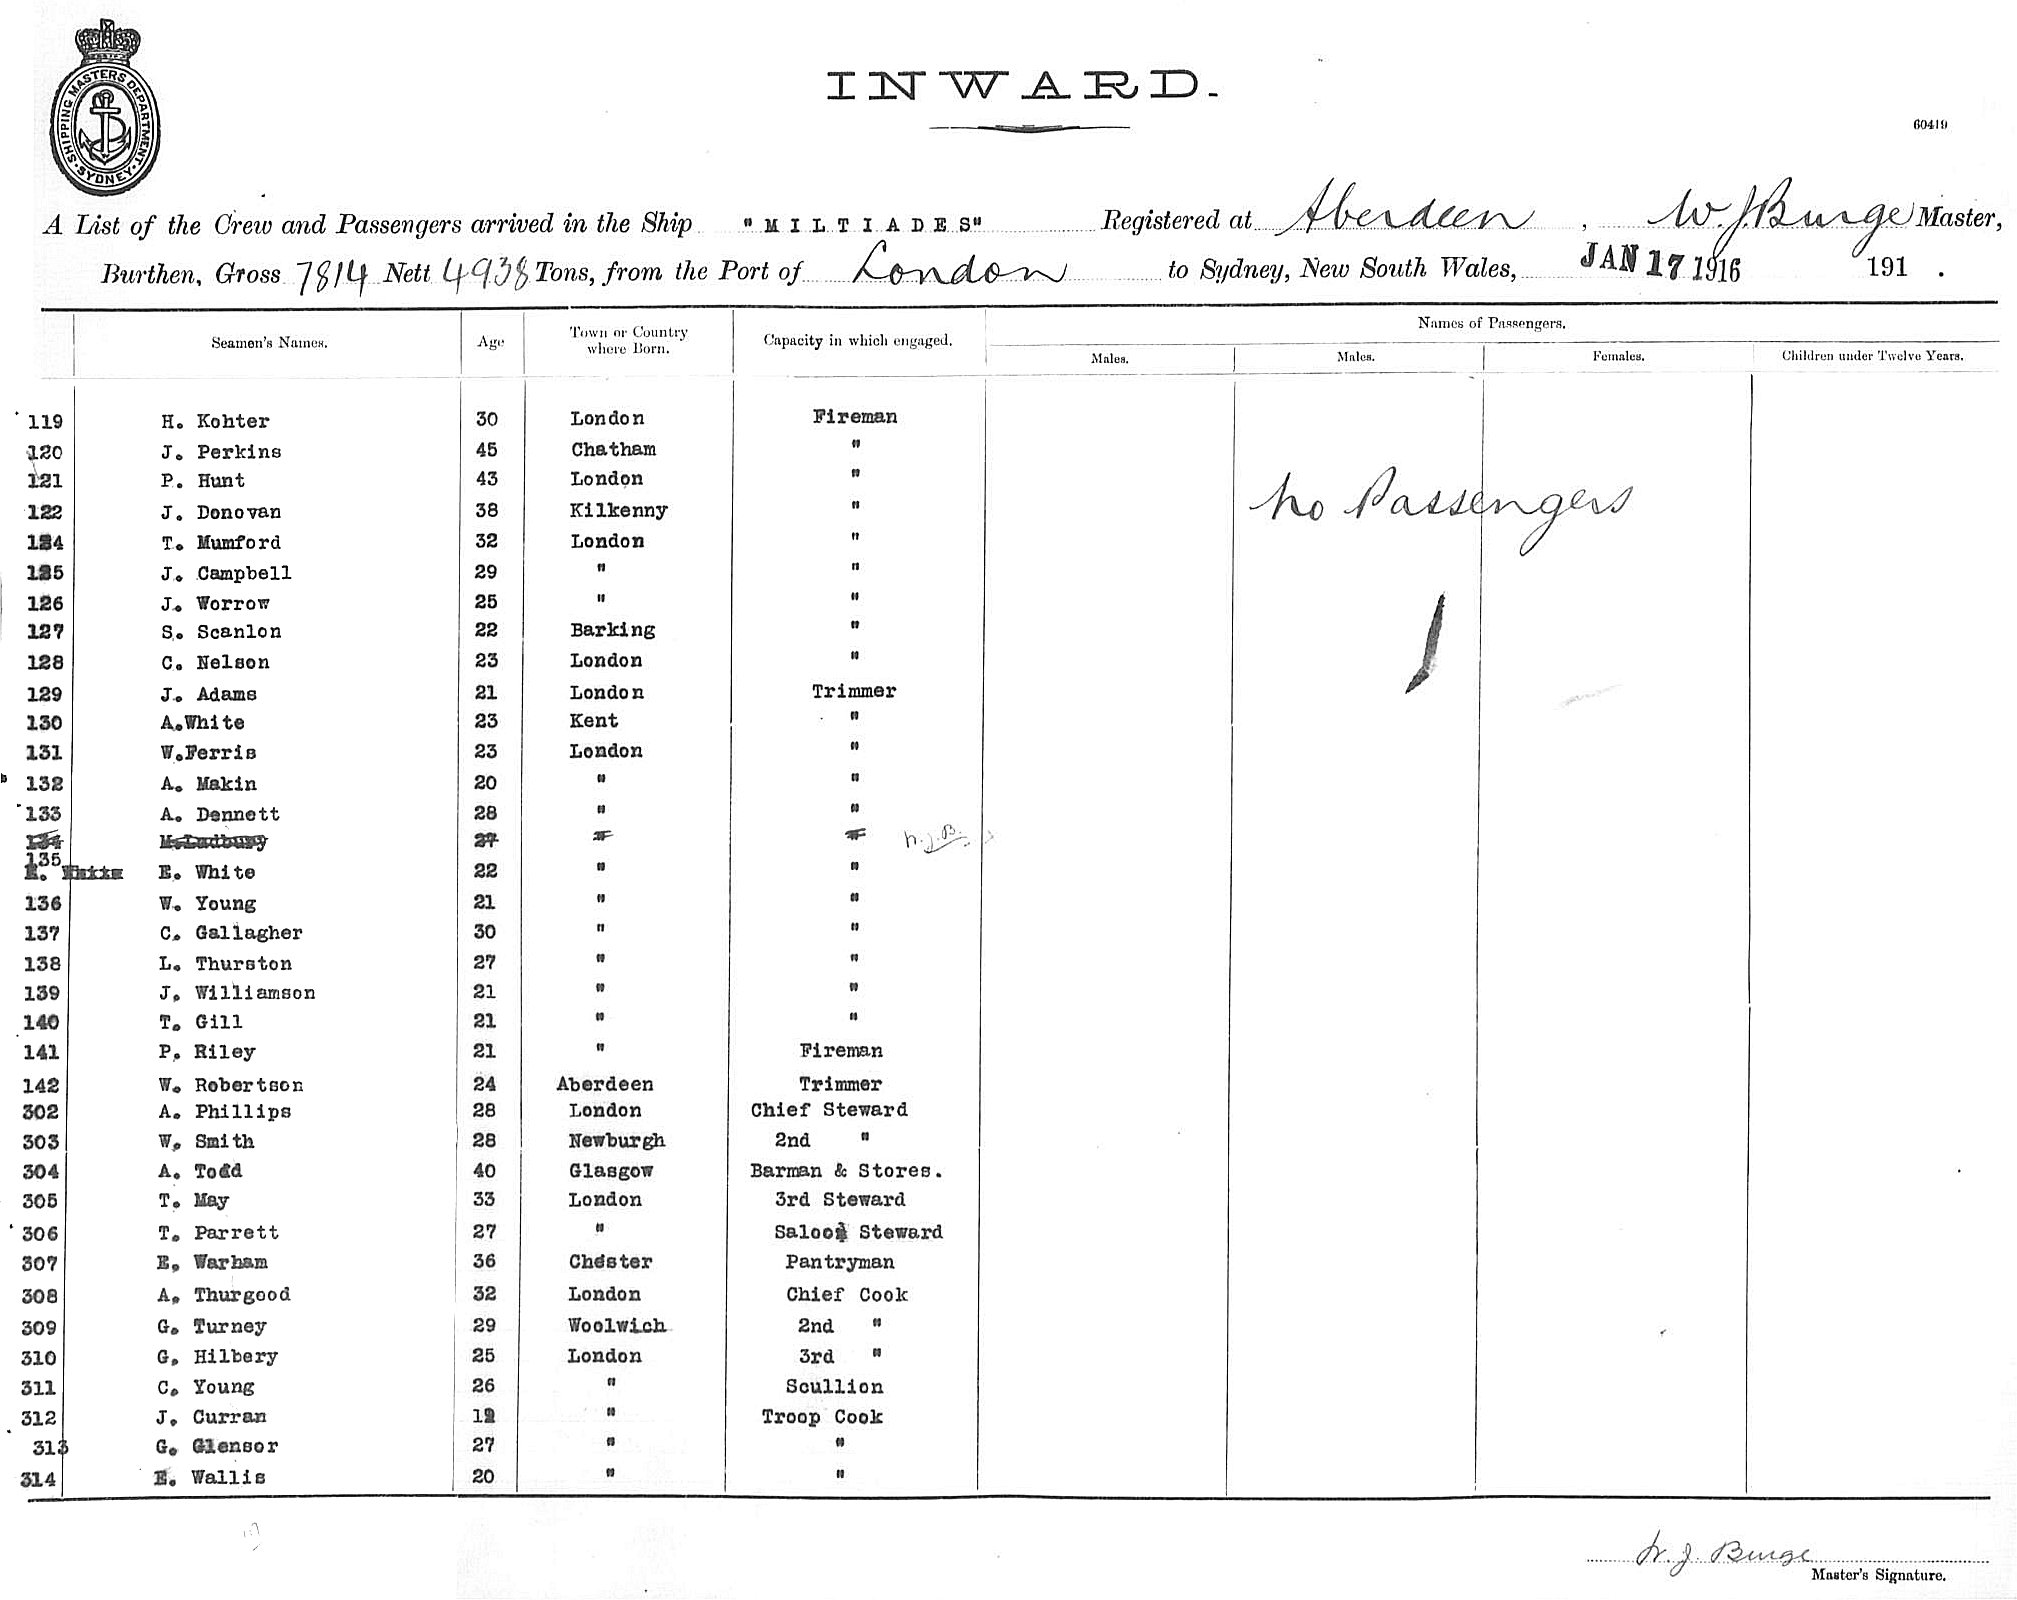 SHIPPING MASTERS DEPARTMENT. SYDNEY
INWARD.
60419
A List of the Crew and Passengers arrived in the Ship "MILTIADES" Registered at Aberdeen, W. J. Burge Master,
Burthen, Gross 7814 Nett 4938 Tons, from the Port of London to Sydney, New South Wales, JAN 17 1916 191 .
Names of Passengers.
Seamen's Names. Age Town or Country where Born. Capacity in which engaged. Males. Males. Females. Children under Twelve Years.
119 H. Kohter 30 London Fireman
120 J. Perkins 45 Chatham "
121 P. Hunt 43 London "
No Passengers
122 J. Donovan 38 Kilkenny "
124 T. Mumford 32 London "
125 J. Campbell 29 " "
126 J. Worrow 25 " "
127 S. Scanlon 22 Barking "
128 C. Nelson 23 London "
129 J. Adams 21 London Trimmer
130 A.White 23 Kent "
131 W.Ferris 23 London "
132 A. Makin 20 " "
133 A. Dennett 28 " "
134 M.Ludbury 27 " " W.J.B.
135 E. White 22 " "
136 W. Young 21 " "
137 C. Gallagher 30 " "
138 L. Thurston 27 " "
139 J. Williamson 21 " "
140 T. Gill 21 " "
141 P. Riley 21 " Fireman
142 W. Robertson 24 Aberdeen Trimmer
302 A. Phillips 28 London Chief Steward
303 W. Smith 28 Newburgh 2nd "
304 A. Todd 40 Glasgow Barman & Stores.
305 T. May 33 London 3rd Steward
306 T. Parrett 27 " Saloon Steward
307 E. Warham 36 Chester Pantryman
308 A. Thurgood 32 London Chief Cook
309 G. Turney 29 Woolwich 2nd "
310 G. Hilbery 25 London 3rd "
311 C. Young 26 " Scullion
312 J. Curran " Troop Cook
313 G. Glensor 27 " "
314 E. Wallis 20 " "
W. J. Burge
Master's Signature.